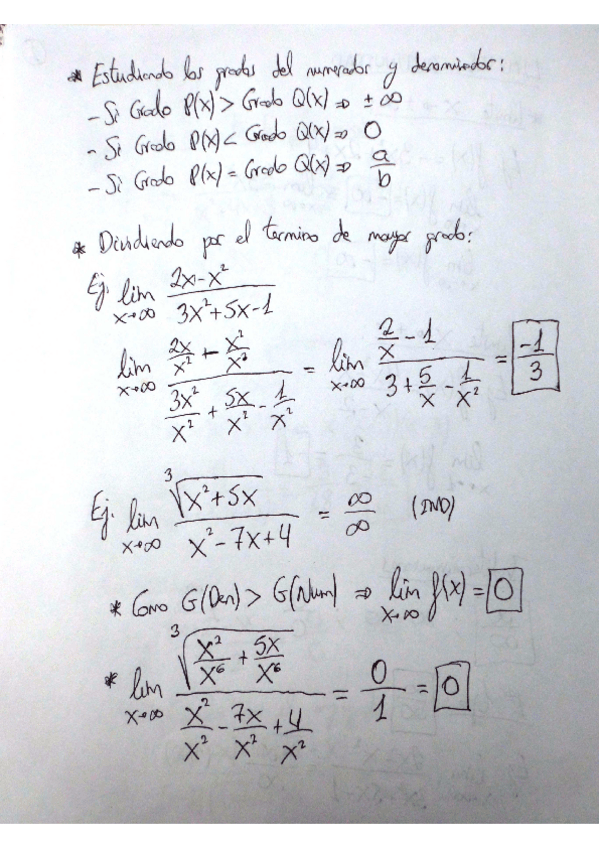 * Estudiando los grados del numerador y denominador:
- Si Grado P(x) > Grado Q(x) ⇒ ± ∞
- Si Grado P(x) < Grado Q(x) ⇒ 0
- Si Grado P(x) = Grado Q(x) ⇒ a/b
* Dividiendo por el termino de mayor grado:
Ej. lim x→∞ (2x-x²)/(3x²+5x-1)
lim x→∞ (2x/x² - x²/x²)/(3x²/x² + 5x/x² - 1/x²) = lim x→∞ (2/x - 1)/(3 + 5/x - 1/x²) = -1/3
Ej. lim x→∞ ∛(x²+5x)/(x²-7x+4) = ∞/∞ (IND)
* Como G(Den) > G(Num) ⇒ lim x→∞ f(x) = 0
* lim x→∞ ∛(x²/x⁶ + 5x/x⁶)/(x²/x² - 7x/x² + 4/x²) = 0/1 = 0